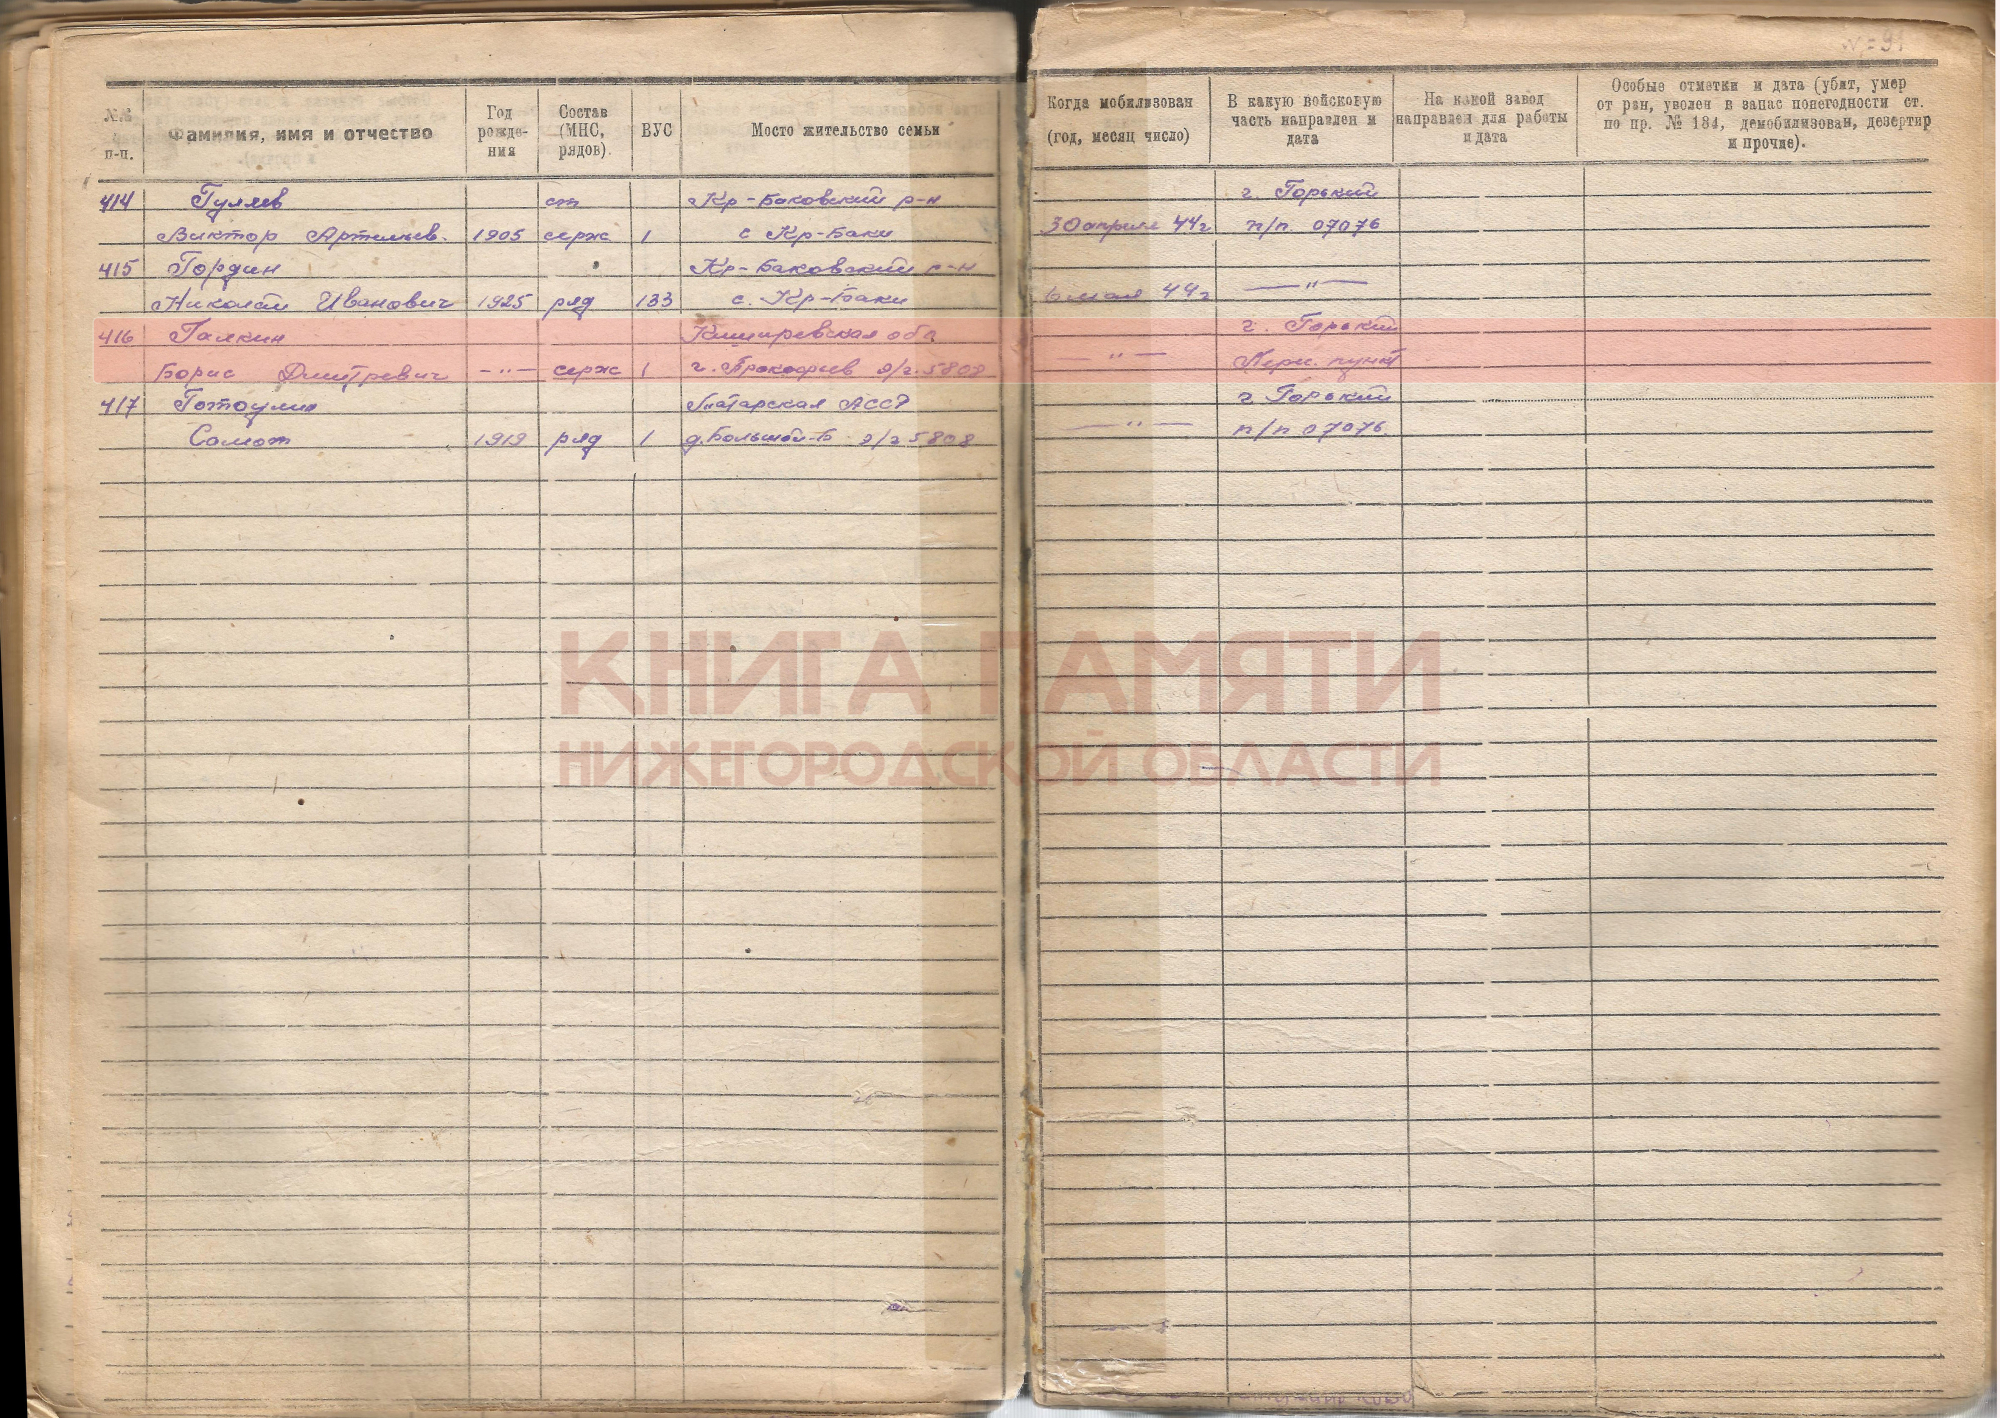 №№ п-п.
Фамилия, имя и отчество
Год рожде- ния
Состав (МНС, рядов).
ВУС
Мосто жительство семьи
Когда мобилизован (год, месяц число)
В какую войсковую часть направлен и дата
На какой завод направлен для работы и дата
Особые отметки и дата (убит, умер от ран, уволен в запас понегодности ст. по пр. № 184, демобилизован, дезертир и прочие).
414 Гуляев ст Кр-Баковский р-н г. Горький
Виктор Артемьев. 1905 серж 1 с Кр-Баки 30 апреля 44г п/п 07076
415 Гордин Кр-Баковский р-н
Николай Иванович 1925 ряд 133 с. Кр-Баки 6 мая 44г — " —
416 Галкин обл г. Горький
Борис Дмитревич — " — серж 1 г. э/г. 5808 — " — Перс. пункт
417 Татарская АССР г Горький
1919 ряд 1 д. Большой-Б э/г 5808 — " — п/п 07076.
КНИГА ПАМЯТИ
НИЖЕГОРОДСКОЙ ОБЛАСТИ